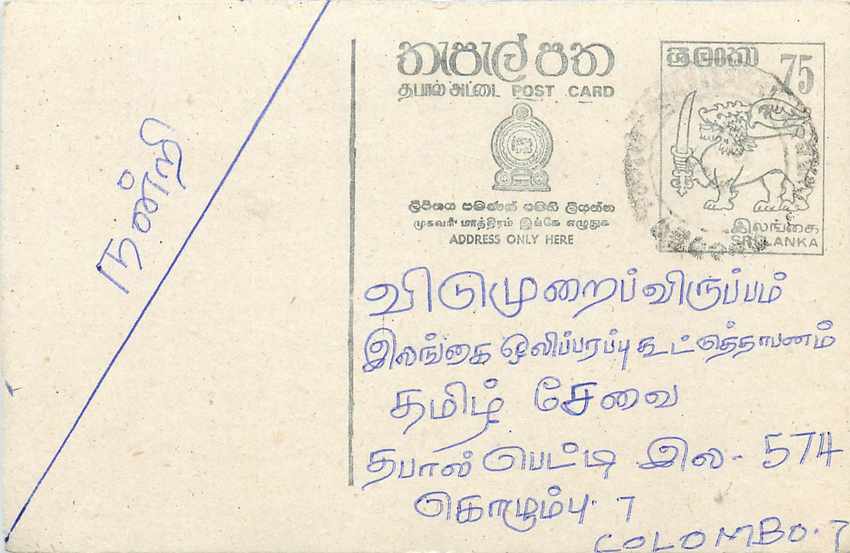 நன்றி
තැපැල් පත
தபால் அட்டை POST CARD
ලිපිනය පමණක් මෙහි ලියන්න
முகவரி மாத்திரம் இங்கே எழுதுக
ADDRESS ONLY HERE
ශ්‍රී ලංකා 75
இலங்கை
SRI LANKA
விடுமுறைப்விருப்பம்
இலங்கை ஒலிப்பரப்பு கூட்டுத்தாபனம்
தமிழ் சேவை
தபால் பெட்டி இல - 574
கொழும்பு. 7
COLOMBO. 7